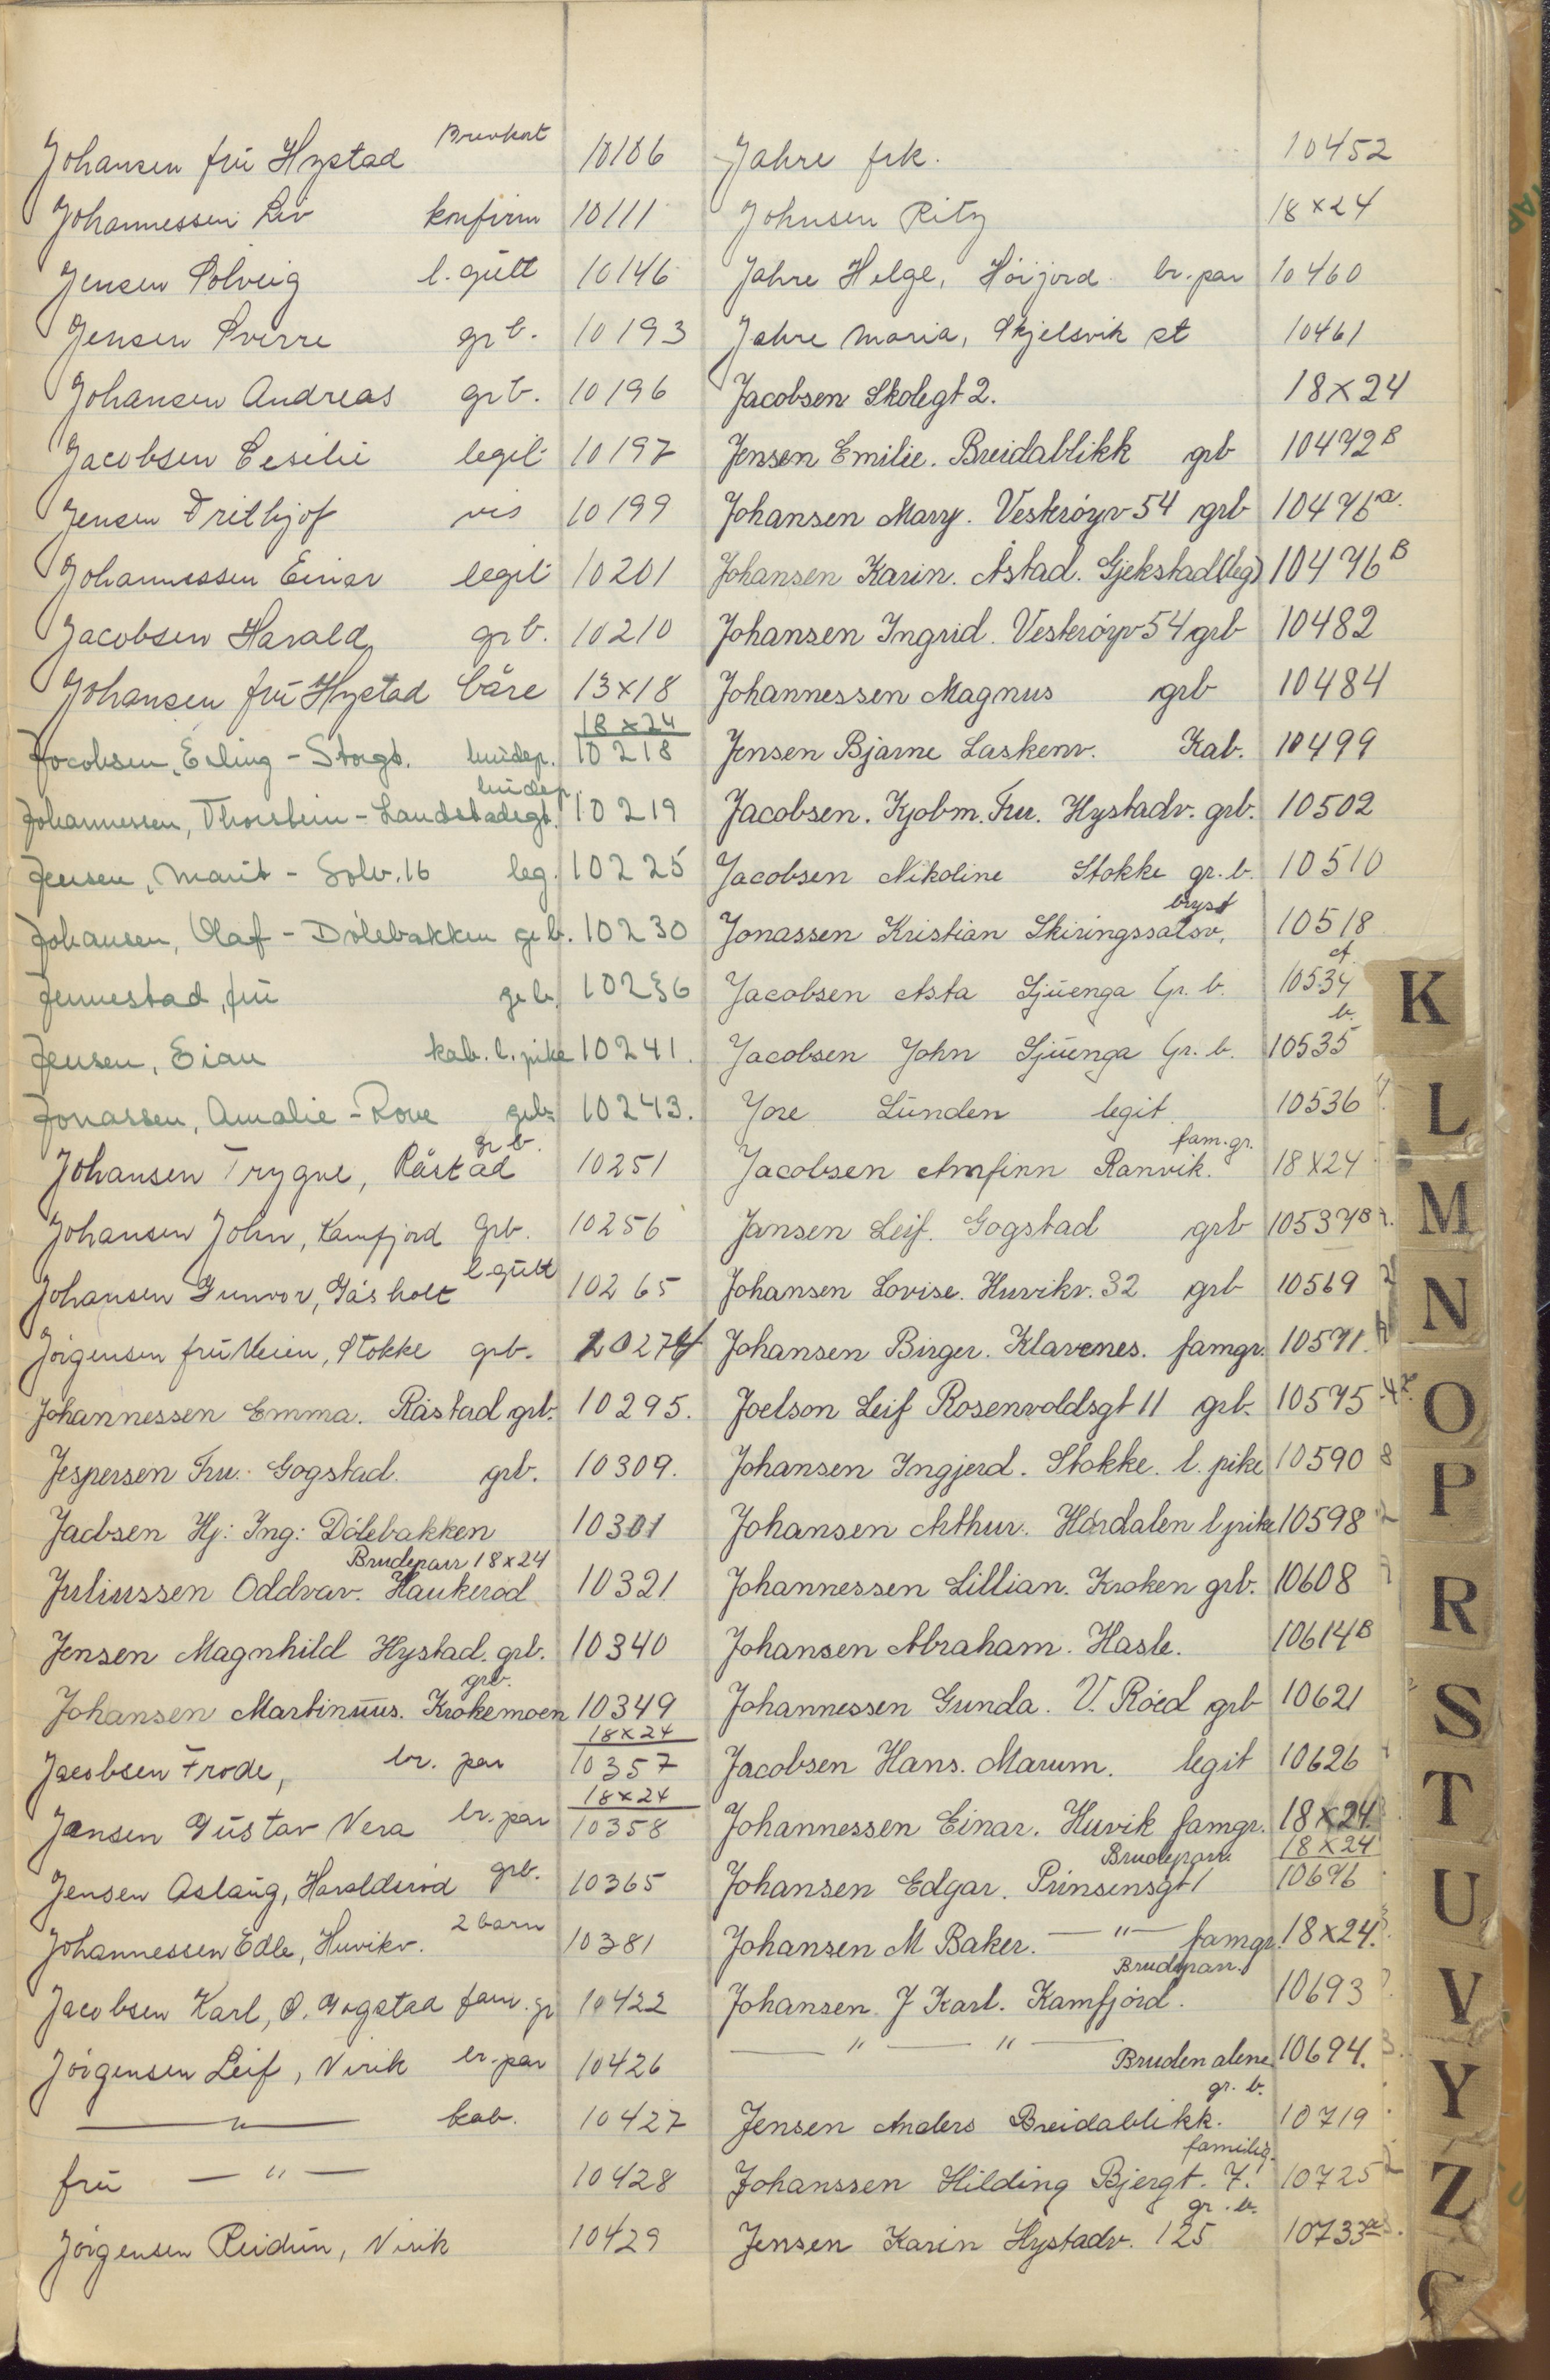 Johansen frū Hystad Brevkort 10106
Johannessen Liv konfirm 10111
Jensen Solveig l. gūtt 10146
Jensen Sverre gr b. 10193
Johansen Andreas gr b. 10196
Jacobsen Cesilie legit 10197
Jensen Frithjof vis 10199
Johannessen Einar legit 10201
Jacobsen Harald gr b. 10210
Johansen frū Hystad båre 13x18
18x24
Jacobsen, Erling - Storgt. 10218
Johannessen, Thorstein - Landstadsgt. 10219
Jensen, Marit - Solv. 16 leg. 10225
Johansen, Olaf - Dölebakken gr b. 10230
Jennestad, frū gr b. 10236
Jensen, Eian kab. l. pike 10241.
Jonassen, Amalie - Rove grb 10243.
gr b.
Johansen Trygve, Råstad 10251
Johansen John, Kamfjord Grb. 10256
Johansen Gunvor, Gåsholt l. gūtt 10265
Jörgensen frū Veien, Stokke grb. 10274
Johannessen Emma. Råstad grb. 10295.
Jespersen Fru. Gogstad. grb. 10309.
Jacbsen Hj: Ing: Dölebakken 10301
Brudeparr 18x24
Juliussen Oddvar. Haukeröd 10321
Jensen Magnhild Hystad. grb. 10340
grb.
Johansen Martinius. Krokemoen 10349
18x24
Jacobsen Frode, br. par 10357
18x24
Jansen Gūstav Vera br. par 10358
Jensen Aslaūg, Haraldsröd grb. 10365
Johannessen Edle, Huvikv. 2 barn 10381
Jacobsen Karl, Ö. Gogstad fam. gr 10422
Jörgensen Leif, Virik br. par 10426
— " — kab. 10427
frū — " — 10428
Jörgensen Reidūn, Virik 10429
Jahre frk. 10452
Johnsen Ritz 18x24
Jahre Helge, Höijord br. par 10460
Jahre Maria, Skjelsvik st 10461
Jacobsen Skolegt 2. 18x24
Jensen Emilie. Breidablikk grb 10472 B
Johansen Mary. Vesteröyv 54 grb 10476 a.
Johansen Karin. Åstad. Gjekstad (leg) 10476 B
Johansen Ingrid. Vesteröyv 54 grb 10482
Johannessen Magnus grb 10484
Jensen Bjarne Laskenv. Kab. 10499
Jacobsen. Kjobm. Fru. Hystadv. grb. 10502
Jacobsen Nikoline Stokke gr. b. 10510
bryst
Jonassen Kristian Skiringssalsv. 10518
Jacobsen Asta Sjūenga Gr. b. 10534
b.
Jacobsen John Sjūenga Gr. b. 10535
Jore Lūnden legit 10536
fam. gr.
Jacobsen Arnfinn Ranvik. 18x24
Jansen Leif. Gogstad grb 10537 B
Johansen Lovise. Huvikv. 32 grb 10569
Johansen Birger. Klavenes. famgr. 10571.
Joelson Leif Rosenvoldsgt 11 grb. 10575
Johansen Ingjerd. Stokke. l. pike 10590
Johansen Arthur. Hårdalen l pike 10598
Johannessen Lillian. Kroken grb. 10608
Johansen Abraham. Hasle. 10614 B
Johannessen Gunda. V. Röed grb 10621
Jacobsen Hans. Marum. legit 10626
Johannessen Einar. Huvik famgr. 18x24
Brudeparr. 18x24
Johansen Edgar. Prinsensgt 1 10676
Johansen M Baker. — " — famgr. 18x24.
Brudeparr.
Johansen J Karl. Kamfjörd. 10693
— " — " — Bruden alene 10694.
gr. b.
Jensen Anders Breidablikk. 10719
familig.
Johanssen Hilding Bjergt. 7. 10725
gr. b.
Jensen Karin Hystadv. 125 10733 a
K
L
M
N
O
P
R
S
T
U
V
Y
Z